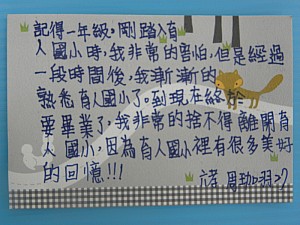 記得一年級，剛踏入育
人國小時，我非常的害怕，但是經過
一段時間後，我漸漸的
熟悉育人國小了。到現在終於
要畢業了，我非常的捨不得離開育
人國小，因為育人國小裡有很多美好
的回憶!!!
六孝 周 27